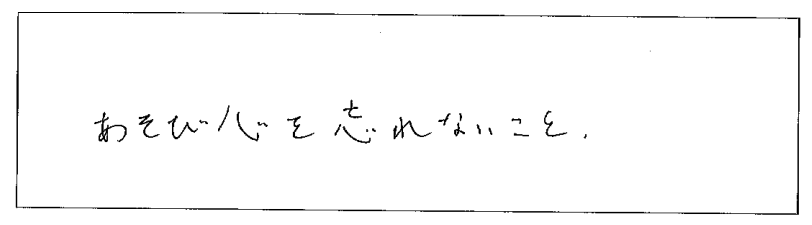 あそび心を忘れないこと.